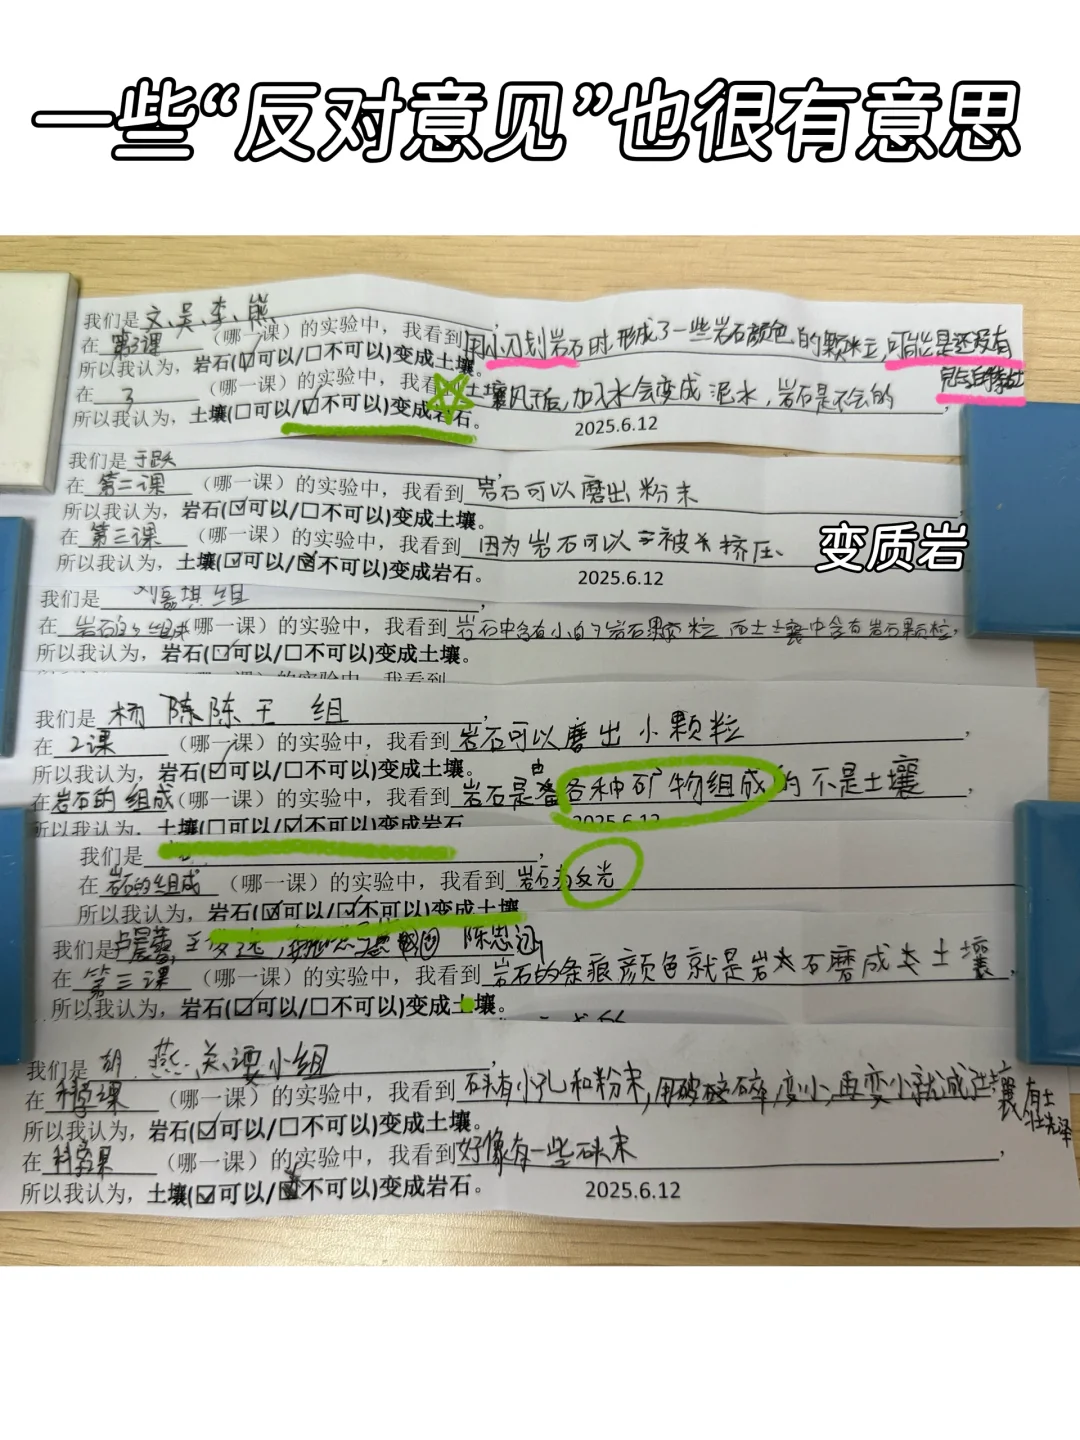 一些“反对意见”也很有意思
我们是文、吴、李、熊，
在第3课（哪一课）的实验中，我看到用小刀划岩石时形成了一些岩石颜色的颗粒，可能是还没有
所以我认为，岩石(☑可以/□不可以)变成土壤。
在3（哪一课）的实验中，我看到土壤风干后，加入水会变成泥水，岩石是不会的，
所以我认为，土壤(□可以/☑不可以)变成岩石。
2025.6.12
我们是于跃，
在第二课（哪一课）的实验中，我看到岩石可以磨出粉末
所以我认为，岩石(☑可以/□不可以)变成土壤。
在第三课（哪一课）的实验中，我看到因为岩石可以被挤压、
变质岩
所以我认为，土壤(☑可以/☑不可以)变成岩石。
2025.6.12
我们是组，
在岩石的组成（哪一课）的实验中，我看到岩石中含有小的岩石颗粒而土壤中含有岩石颗粒，
所以我认为，岩石(☑可以/□不可以)变成土壤。
（哪一课）的实验中，我看到
我们是杨陈陈王组，
在2课（哪一课）的实验中，我看到岩石可以磨出小颗粒，
所以我认为，岩石(☑可以/□不可以)变成土壤。
在岩石的组成（哪一课）的实验中，我看到岩石是由各种矿物组成的不是土壤，
所以我认为，土壤(□可以/☑不可以)变成岩石
2025.6.12
我们是，
在岩石的组成（哪一课）的实验中，我看到岩石有反光
所以我认为，岩石(☑可以/☑不可以)变成土壤
我们是陈思涵
在第三课（哪一课）的实验中，我看到岩石的条痕颜色就是岩石磨成土壤，
所以我认为，岩石(☑可以/□不可以)变成土壤。
我们是胡、燕、关、谭小组，
在科学课（哪一课）的实验中，我看到石头有小孔和粉末，用破碎，变小，再变小就成土壤
所以我认为，岩石(☑可以/□不可以)变成土壤。
在科学课（哪一课）的实验中，我看到好像有一些石头末，
所以我认为，土壤(☑可以/☑不可以)变成岩石。
2025.6.12